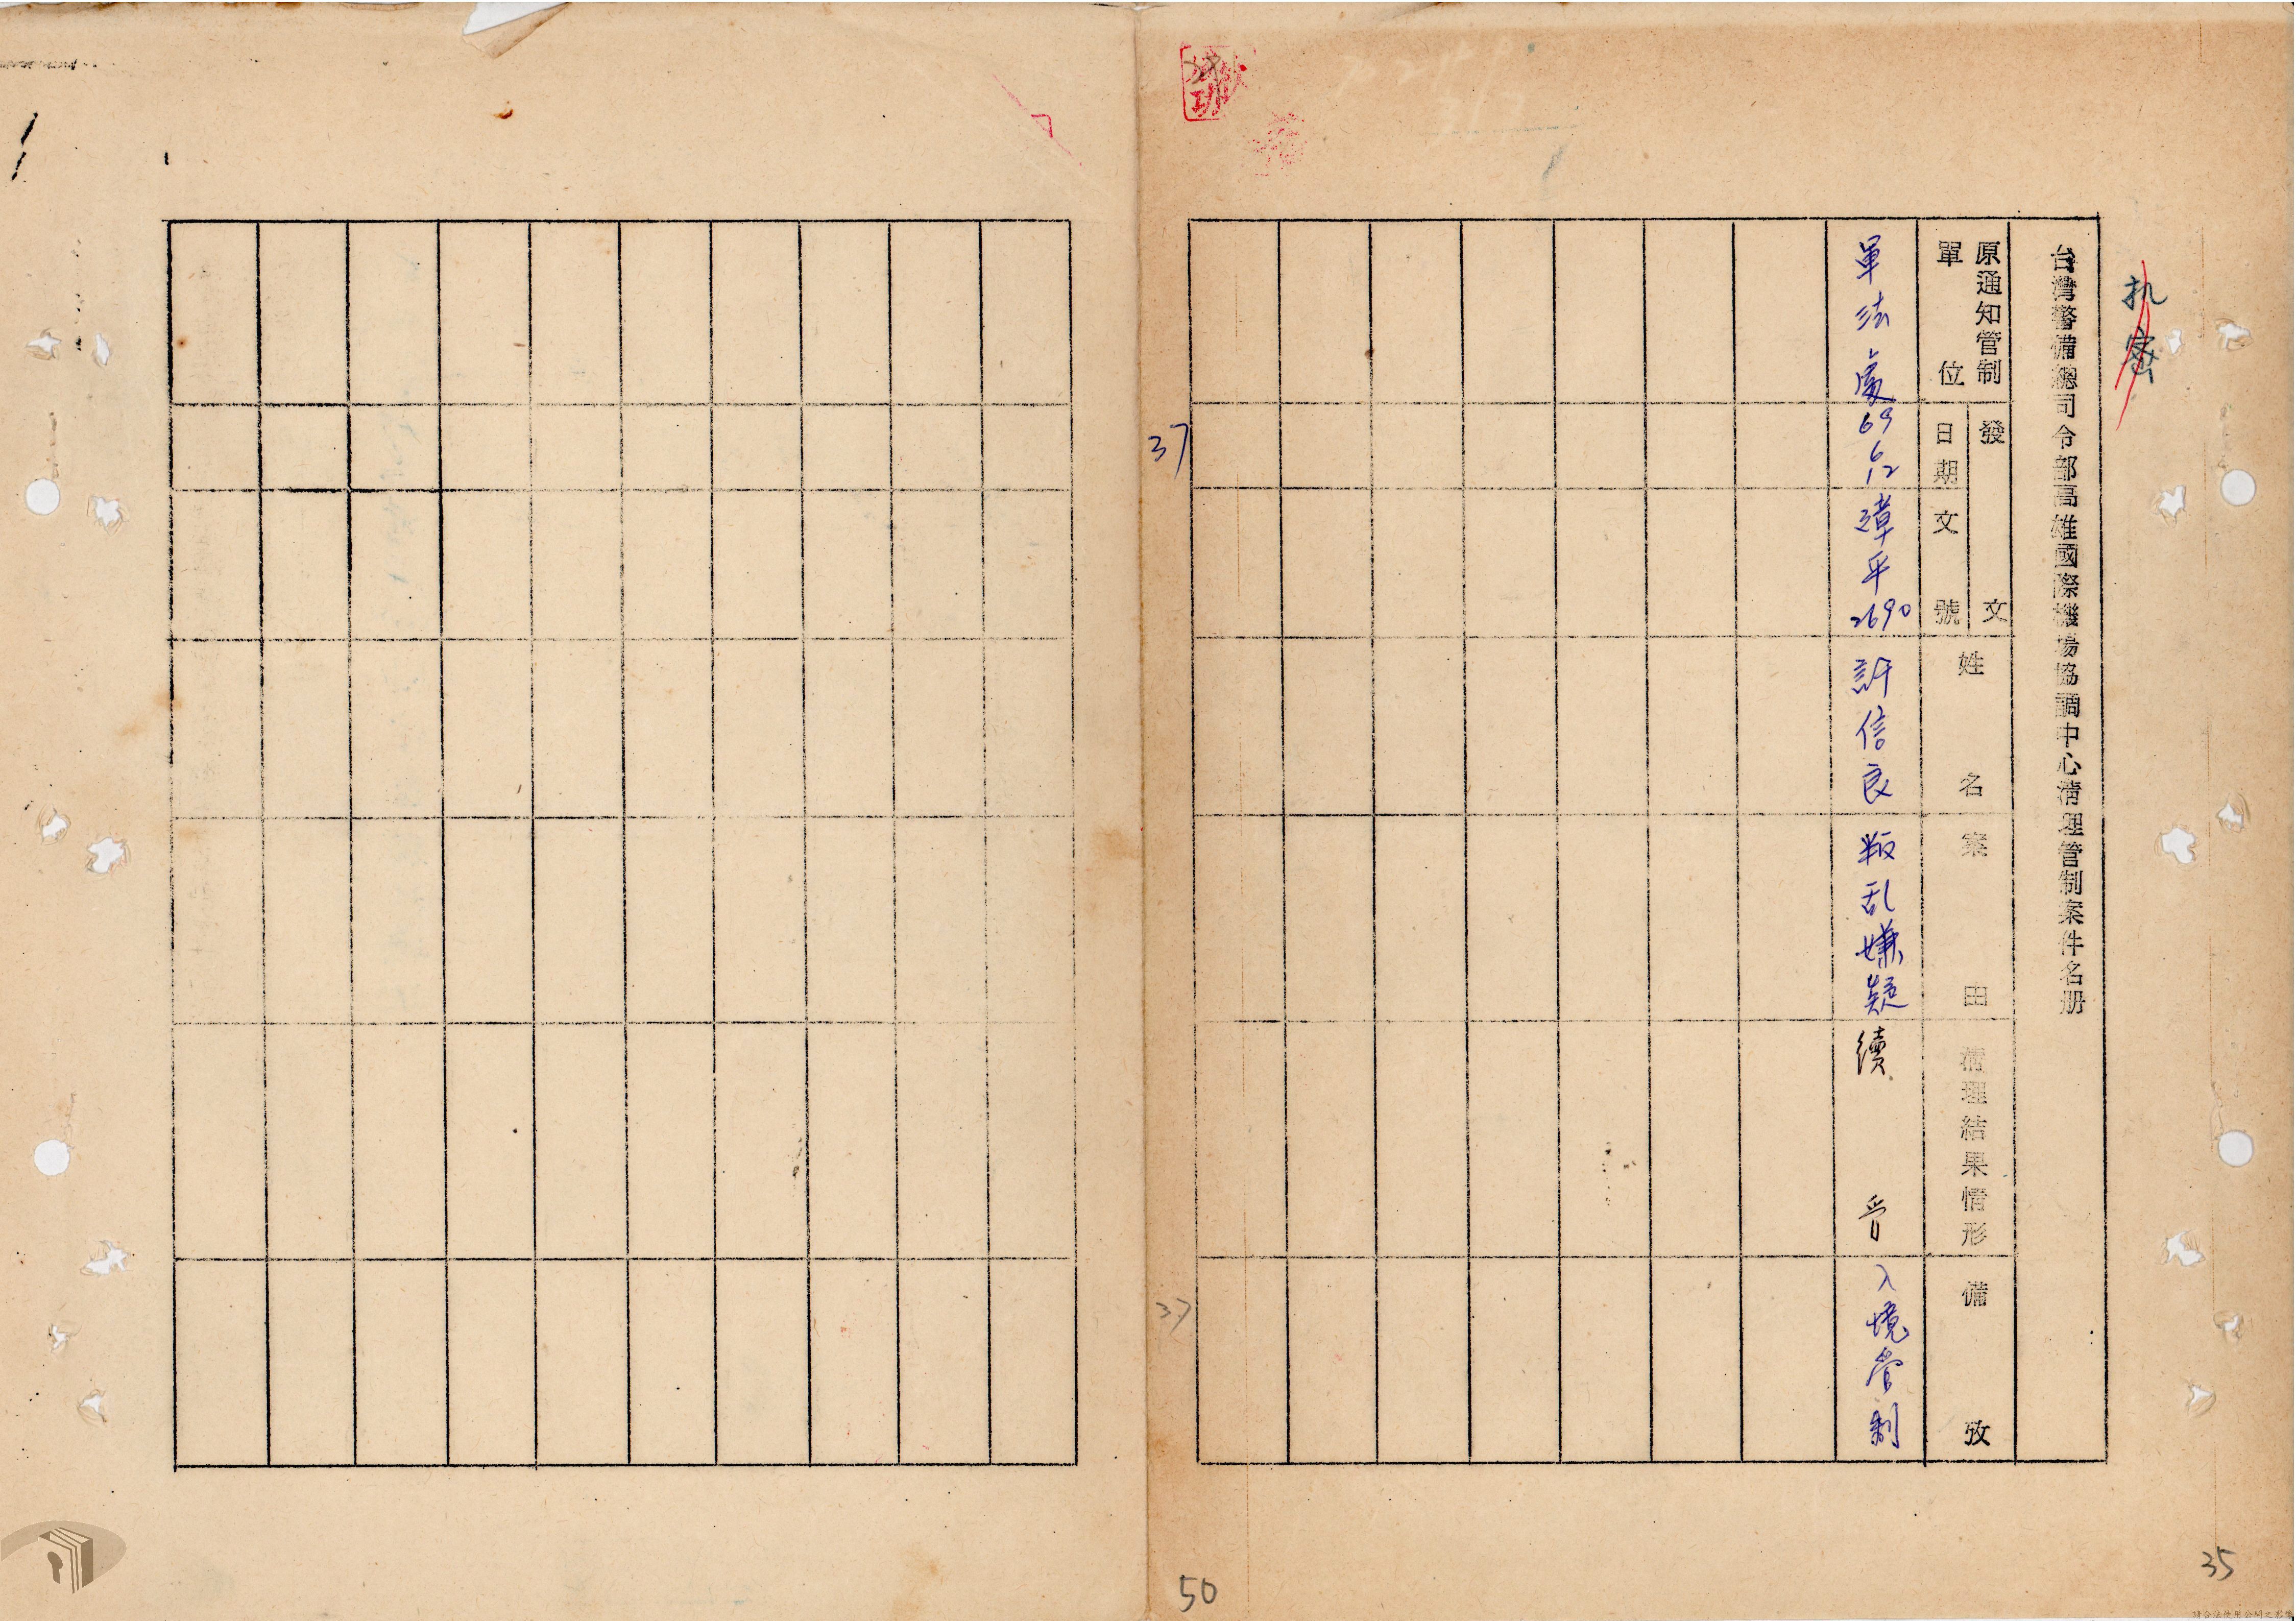 机密
台灣警備總司令部高雄國際機場協調中心清理管制案件名册
原通知管制
單位
發文
日期
文號
姓名
案由
清理結果情形
備攷
軍法處
69
6
12
障平
2690
許信良
叛乱嫌疑
續管
入境管制
37
37
50
35